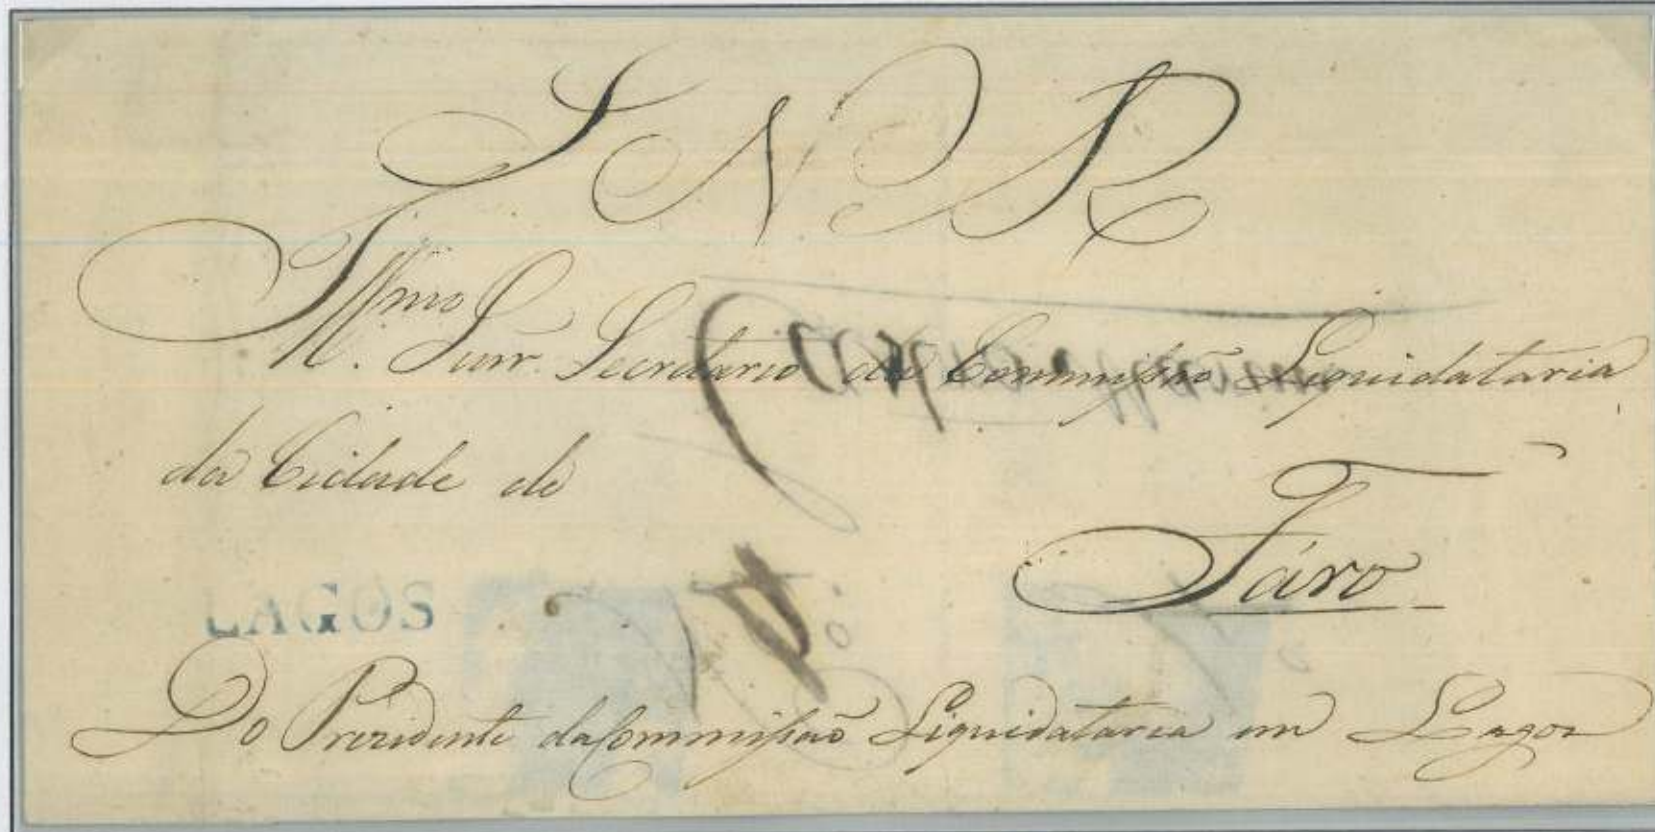 S N R
Illmo Snr. Secretario da Commissão Liquidataria
da Cidade de
Fáro
LAGOS
Do Prezidente da Commissão Liquidataria em Lagos